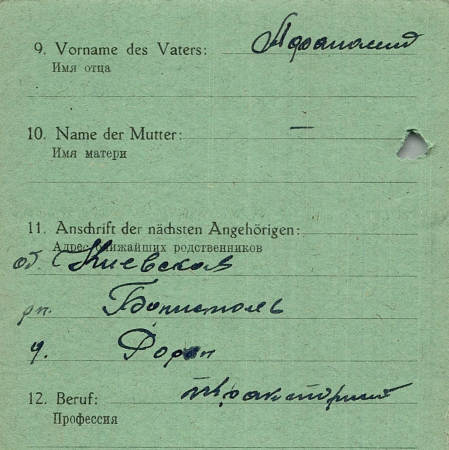 9. Vorname des Vaters: Афанасий
Имя отца
10. Name der Mutter: —
Имя матери
11. Anschrift der nächsten Angehörigen:
Адрес ближайших родственников
об. Киевская
рп.
д.
12. Beruf:
Профессия